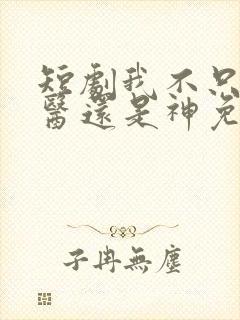 短劇我不只
醫還是神免
子冉無塵